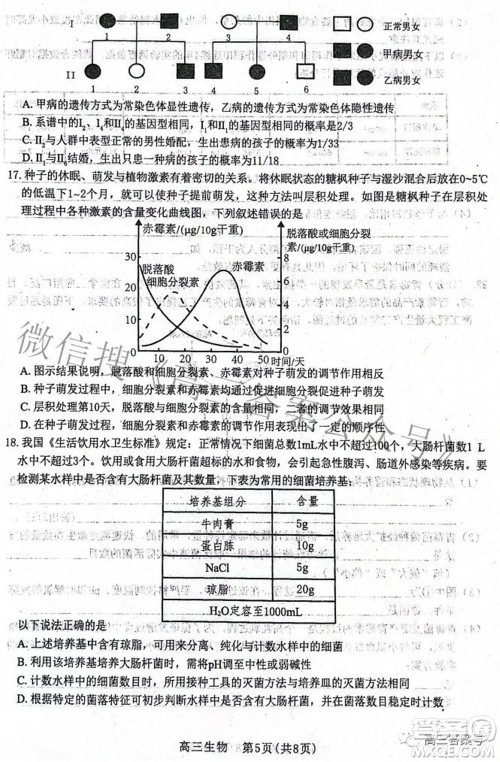 1 2 3 4
正常男女
甲病男女
乙病男女
II
1 2 3 4 5 6
A. 甲病的遗传方式为常染色体显性遗传，乙病的遗传方式为常染色体隐性遗传
C. Ⅱ₂与人群中表型正常的男性婚配，生出一个患甲病的孩子的概率是1/3
17. 种子的休眠、萌发与植物激素有着密切的关系。将休眠状态的糖枫种子与湿沙混合后放在0~5℃
的低温下1~2个月，就可以使种子提前萌发，这种方法叫层积处理。如图是糖枫种子在层积处
理过程中各种激素的含量变化曲线图，下列叙述错误的是
赤霉素/(μg/10g干重)
脱落酸或细胞分裂
素/(μg/10g干重)
脱落酸
细胞分裂素
赤霉素
40 30 20 10
8 6 4 2
0 10 20 30 40 50 时间/天
A. 图示结果说明，脱落酸和细胞分裂素、赤霉素对种子萌发的调节作用相反
B. 种子萌发过程中，细胞分裂素的作用是通过促进细胞分裂促进种子萌发
C. 层积处理第10天，脱落酸与细胞分裂素含量相等，调节效应相互抵消
D. 种子萌发过程中，不同激素的调节往往表现出一定的顺序性
18. 我国《生活饮用水卫生标准》规定：正常情况下细菌总数1mL水中不超过100个，大肠杆菌数1 L
水中不超过3个。饮用或食用大肠杆菌超标的水和食物，会引起急性腹泻、肠道外感染等疾病。要
检测某水样中是否含有大肠杆菌及其数量，下表为常用的细菌培养基：
培养基组分 含量
牛肉膏 5g
蛋白胨 10g
NaCl 5g
琼脂 20g
H₂O定容至1000mL
以下说法正确的是
A. 上述培养基中含有琼脂，可用来分离、纯化与计数水样中的细菌
B. 利用该培养基培养大肠杆菌时，需将pH调至中性或弱碱性
C. 计数水样中的细菌数目时，需设置接种无菌水的培养基与培养皿的灭菌效果
D. 根据菌株的菌落特征可初步判断水样中是否含有大肠杆菌并在数目稳定时统计数
高三生物 第5页(共8页)
微信搜《高三答案公众号》
高三答案号